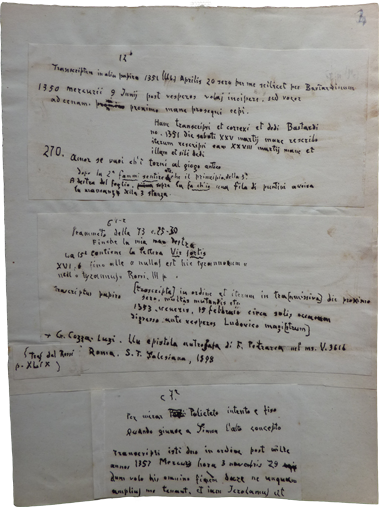 12ª
Transcriptum in alia papiro 1351 Aprilis 20 sero per me scilicet per Bastardinum
1350 mercurii 9 Junij post vesperos volui incipere, sed vocor
ad cenam. proximo mane prosequi cepi.
Hanc transcripsi et correxi et dedi Bastardi
no. 1391 die sabati XXV martij mane
iterum rescripsi eam XXVIII martij mane et
illam ei sibi dedi
270. Amor se vuoi ch'i torni al giogo antico
dopo la 2ª che il principio della 5ª
A sestra del foglio. sopra la fa chis una fila di puntini avvisa
la mancanza della 3 stanza.
frammento della 73 c. 25-30
Finchè la mia man destra
La 15ª contiene la lettera Vir fortis
XVI, 6 fino alle o nulla est hic tyrannorum
nell' Rossi, III p.
Transcriptus papiro (transcripta) in ordine et iterum in dic proximo
sero, multis mutatis etc
1393, veneris, 19 februario circa solis occasum
digresso ante vesperos Ludovico magistrum)
G. Cozza-Luzi. Un epistola autografa di F. Petrarca nel ms. V. 3616
Roma. S. T. Salesiana, 1898
(Test del Rossi
p. XLIX)
c 7ª
Per mirar Policleto intento e fiso
Quando giunse a Simon l'alto concepto
Transcripsi isti duo in ordine post mille
annos 1357 Mercurii hora 3 novembris 29
dum volo his omnino finem dare ne unquam
amplius me tenant, et iam Jerolamus et